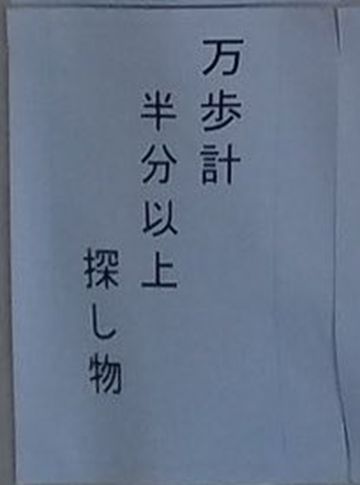 万歩計
半分以上
探し物